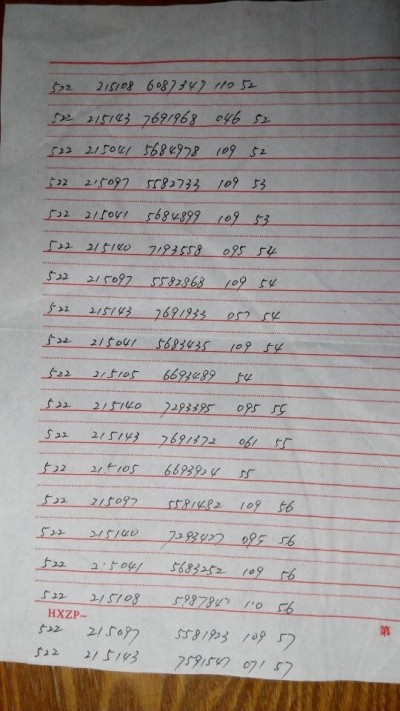 522 215108 6087347 110 52
522 215143 7691968 046 52
522 215041 5684978 109 52
522 215097 5582733 109 53
522 215041 5684899 109 53
522 215140 7193558 095 54
522 215097 5582868 109 54
522 215143 7691933 057 54
522 215041 5683435 109 54
522 215105 6693489 54
522 215140 7293395 095 55
522 215143 7691372 061 55
522 215105 6693924 55
522 215097 5581482 109 56
522 215140 7293427 095 56
522 215041 5683252 109 56
522 215108 5987847 110 56
HXZP- 第
522 215097 5581923 109 57
522 215143 7591547 071 57